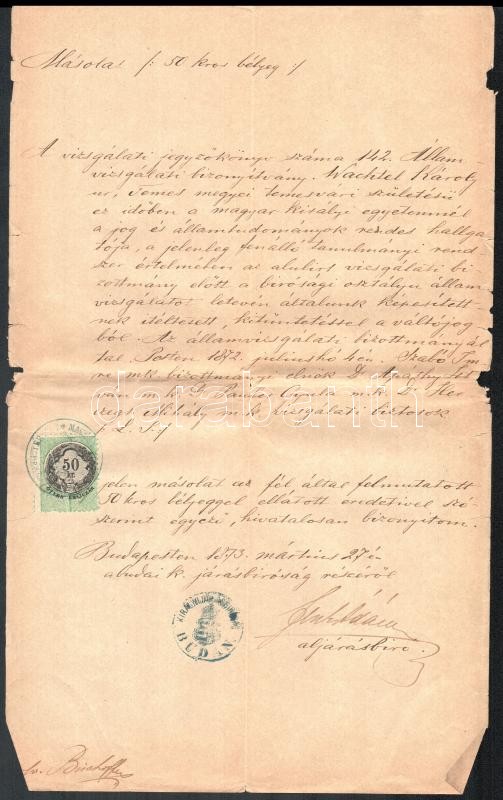 Másolat /: 50 kros bélyeg :/
A vizsgálati jegyzőkönyv száma 142. Állam-
vizsgálati bizonyitvány. Wachtel Károly
ur, Temes megyei temesvári születésü
ez időben a magyar királyi egyetemnél
a jog és államtudományok rendes hallga
tója, a jelenleg fenálló tanulmányi rend
szer értelmében az alulirt vizsgálati bi
zottmány előtt a birósági osztályu állam
vizsgálatot letevén általunk képesitett
nek itéltetett, kitüntetéssel a váltójog
ból. Az államvizsgálati bizottmány ál
tal Pesten 1872 juliushó 4én. Szabó Im
re mk bizottmányi elnök Dr. Apáthy Ist
ván m.k. Dr Pauler Gyula m.k. Dr Her
czegh Mihály m.k. vizsgálati biztosok
/: L. S :/
50
KR
jelen másolat az fél által felmutatott
50 kros bélyeggel ellátott eredetivel szó
szerint egyező, hivatalosan bizonyitom.
Budapesten 1873. március 27én
a budai k. járásbiróság részéről
BUDÁN
aljárásbiró
Bischoff
darabanth